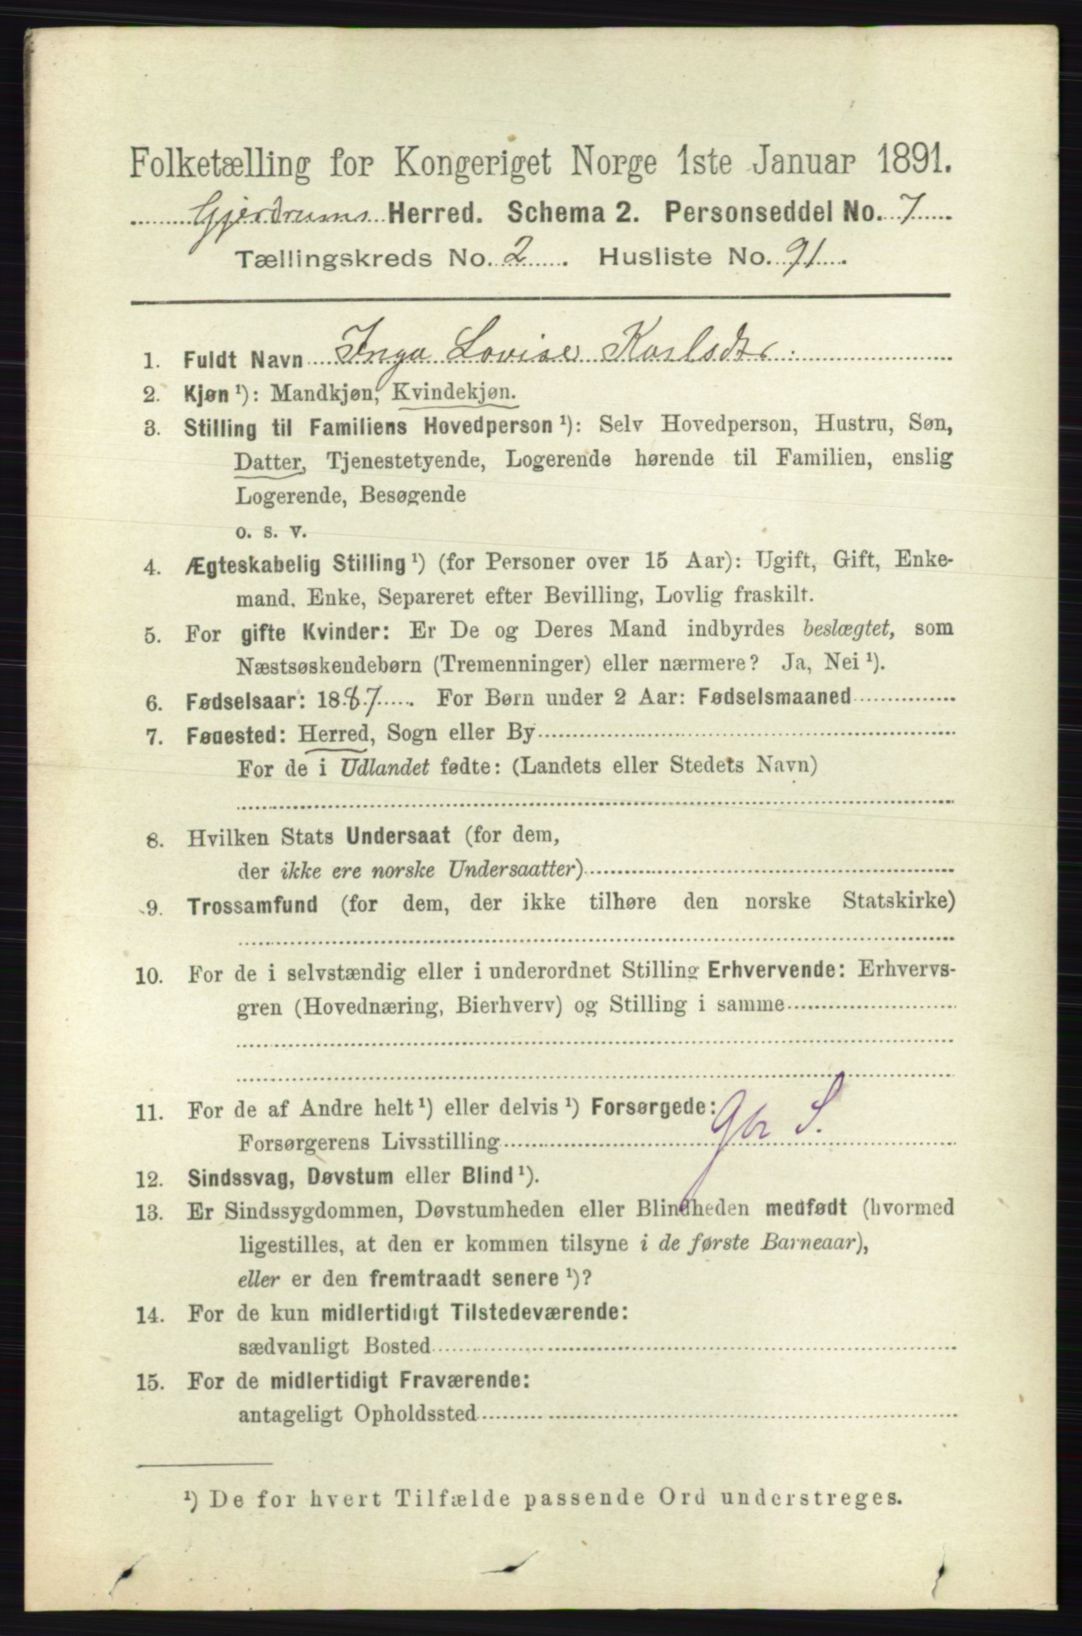 Folketælling for Kongeriget Norge 1ste Januar 1891.
Gjerdrums Herred. Schema 2. Personseddel No. 7
Tællingskreds No. 2. Husliste No. 91.
1. Fuldt Navn Inga Lovise Karlsdtr.
2. Kjøn ¹): Mandkjøn, Kvindekjøn.
3. Stilling til Familiens Hovedperson ¹): Selv Hovedperson, Hustru, Søn,
Datter, Tjenestetyende, Logerende hørende til Familien, enslig
Logerende, Besøgende
o. s. v.
4. Ægteskabelig Stilling ¹) (for Personer over 15 Aar): Ugift, Gift, Enke-
mand, Enke, Separeret efter Bevilling, Lovlig fraskilt.
5. For gifte Kvinder: Er De og Deres Mand indbyrdes beslægtet, som
Næstsøskendebørn (Tremenninger) eller nærmere? Ja, Nei ¹).
6. Fødselsaar: 1887. For Børn under 2 Aar: Fødselsmaaned
7. Fødested: Herred, Sogn eller By
For de i Udlandet fødte: (Landets eller Stedets Navn)
8. Hvilken Stats Undersaat (for dem,
der ikke ere norske Undersaatter)
9. Trossamfund (for dem, der ikke tilhøre den norske Statskirke)
10. For de i selvstændig eller i underordnet Stilling Erhvervende: Erhvervs-
gren (Hovednæring, Bierhverv) og Stilling i samme
11. For de af Andre helt ¹) eller delvis ¹) Forsørgede:
Forsørgerens Livsstilling Gbr S.
12. Sindssvag, Døvstum eller Blind ¹).
13. Er Sindssygdommen, Døvstumheden eller Blindheden medfødt (hvormed
ligestilles, at den er kommen tilsyne i de første Barneaar),
eller er den fremtraadt senere ¹)?
14. For de kun midlertidigt Tilstedeværende:
sædvanligt Bosted
15. For de midlertidigt Fraværende:
antageligt Opholdssted
¹) De for hvert Tilfælde passende Ord understreges.